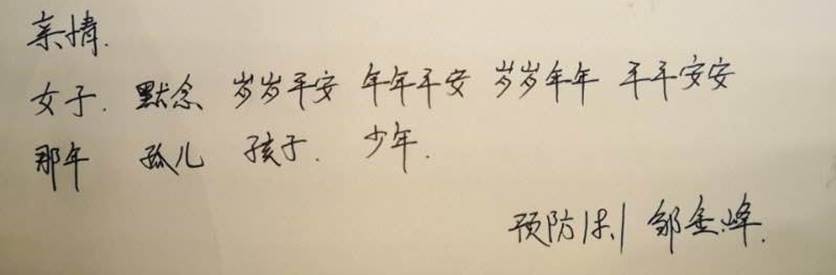 亲情.
女子. 默念 岁岁平安 年年平安 岁岁年年 平平安安
那年 孤儿 孩子. 少年.
预防 邹金峰.